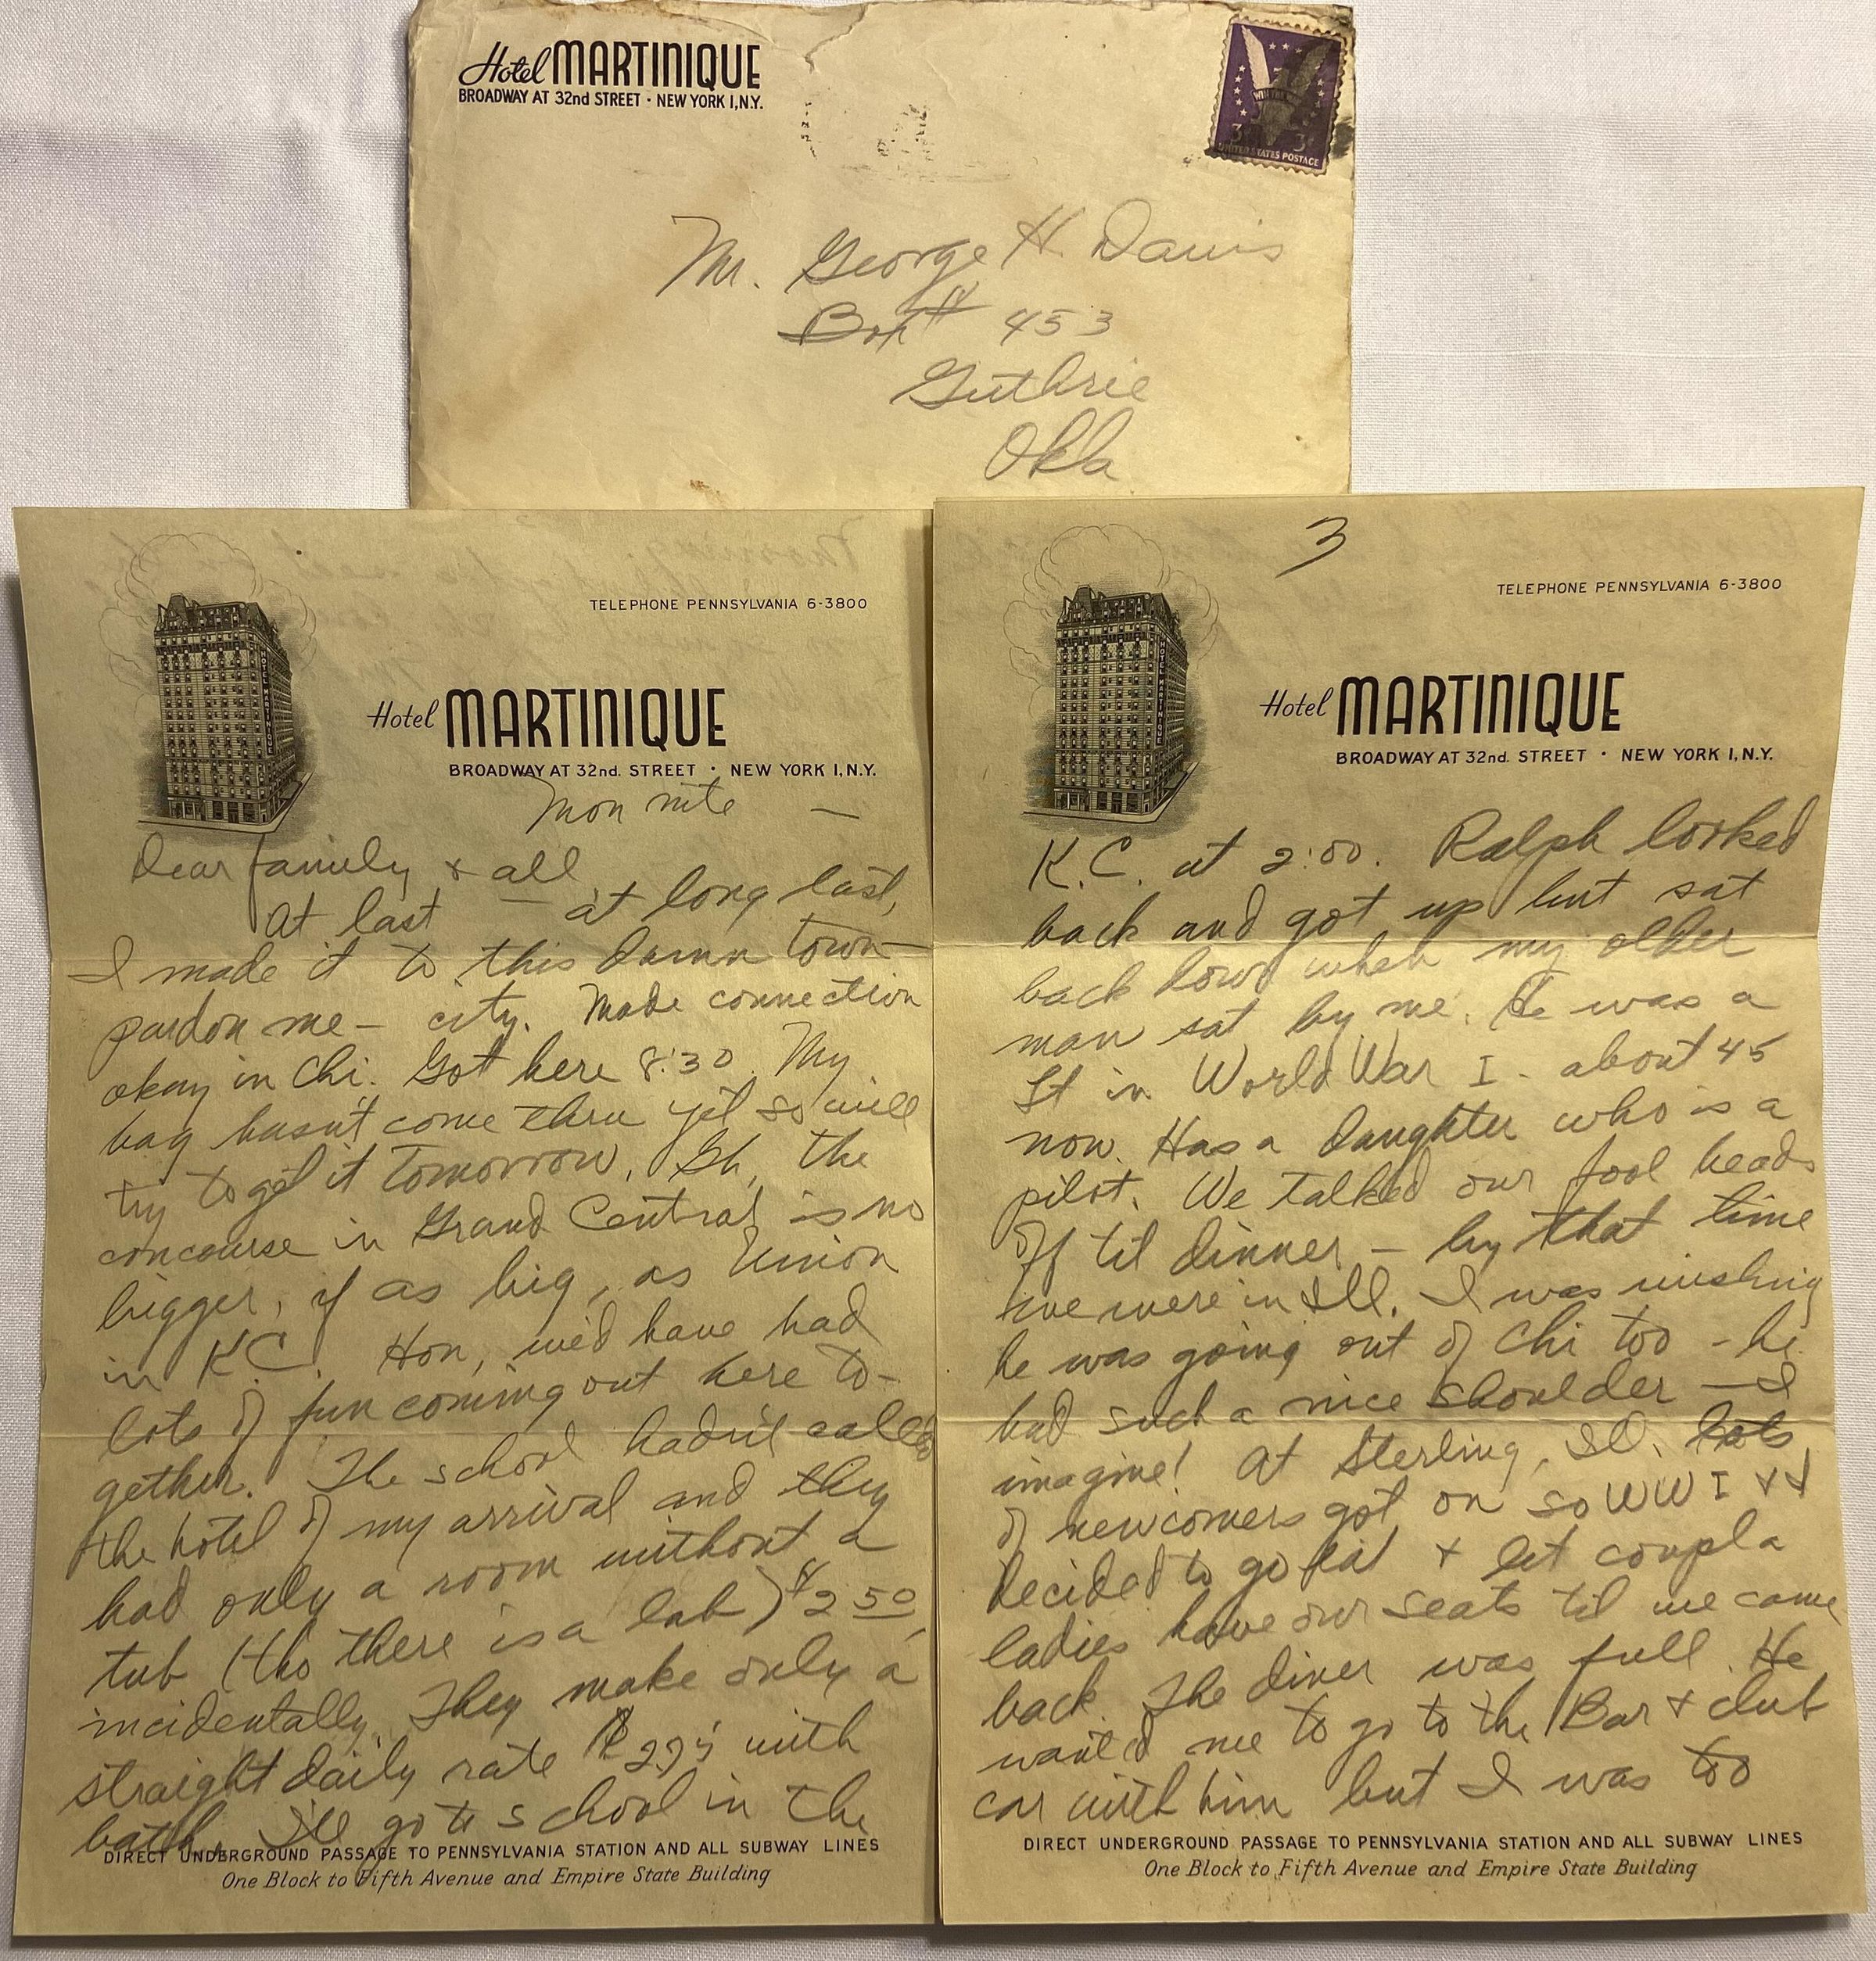 Hotel MARTINIQUE
BROADWAY AT 32nd STREET · NEW YORK 1, N.Y.
WIN THE
3¢ 3¢
UNITED STATES POSTAGE
Mr. George H Davis
Box # 453
Guthrie
Okla
TELEPHONE PENNSYLVANIA 6-3800
HOTEL MARTINIQUE
Hotel MARTINIQUE
BROADWAY AT 32nd. STREET · NEW YORK 1, N.Y.
Mon nite —
Dear family & all
At last — at long last,
I made it to this damn town—
pardon me — city. Made connection
okay in Chi. Got here 8:30. My
bag hasn't come thru yet so will
try to get it tomorrow. Gh, the
concourse in Grand Central is no
bigger, if as big, as Union
in K.C. Hon, we'd have had
lots of fun coming out here to-
gether. The school hadn't called
the hotel of my arrival and they
had only a room without a
tub (tho there is a lab) $2 50,
incidentally. They make only a
straight daily rate $2.75 with
bath. I'll go to school in the
DIRECT UNDERGROUND PASSAGE TO PENNSYLVANIA STATION AND ALL SUBWAY LINES
One Block to Fifth Avenue and Empire State Building
3
TELEPHONE PENNSYLVANIA 6-3800
HOTEL MARTINIQUE
Hotel MARTINIQUE
BROADWAY AT 32nd. STREET · NEW YORK 1, N.Y.
K.C. at 2:00. Ralph looked
back and got up but sat
back down when my older
man sat by me. He was a
Lt in World War I - about 45
now. Has a daughter who is a
pilot. We talked our fool heads
off til dinner — by that time
we were in Ill. I was wishing
he was going out of Chi too - he
had such a nice shoulder — I
imagine! At Sterling, Ill. lots
of newcomers got on so WW I & I
decided to go eat & let coupla
ladies have our seats til we came
back. The diner was full. He
wanted me to go to the Bar & club
car with him but I was too
DIRECT UNDERGROUND PASSAGE TO PENNSYLVANIA STATION AND ALL SUBWAY LINES
One Block to Fifth Avenue and Empire State Building